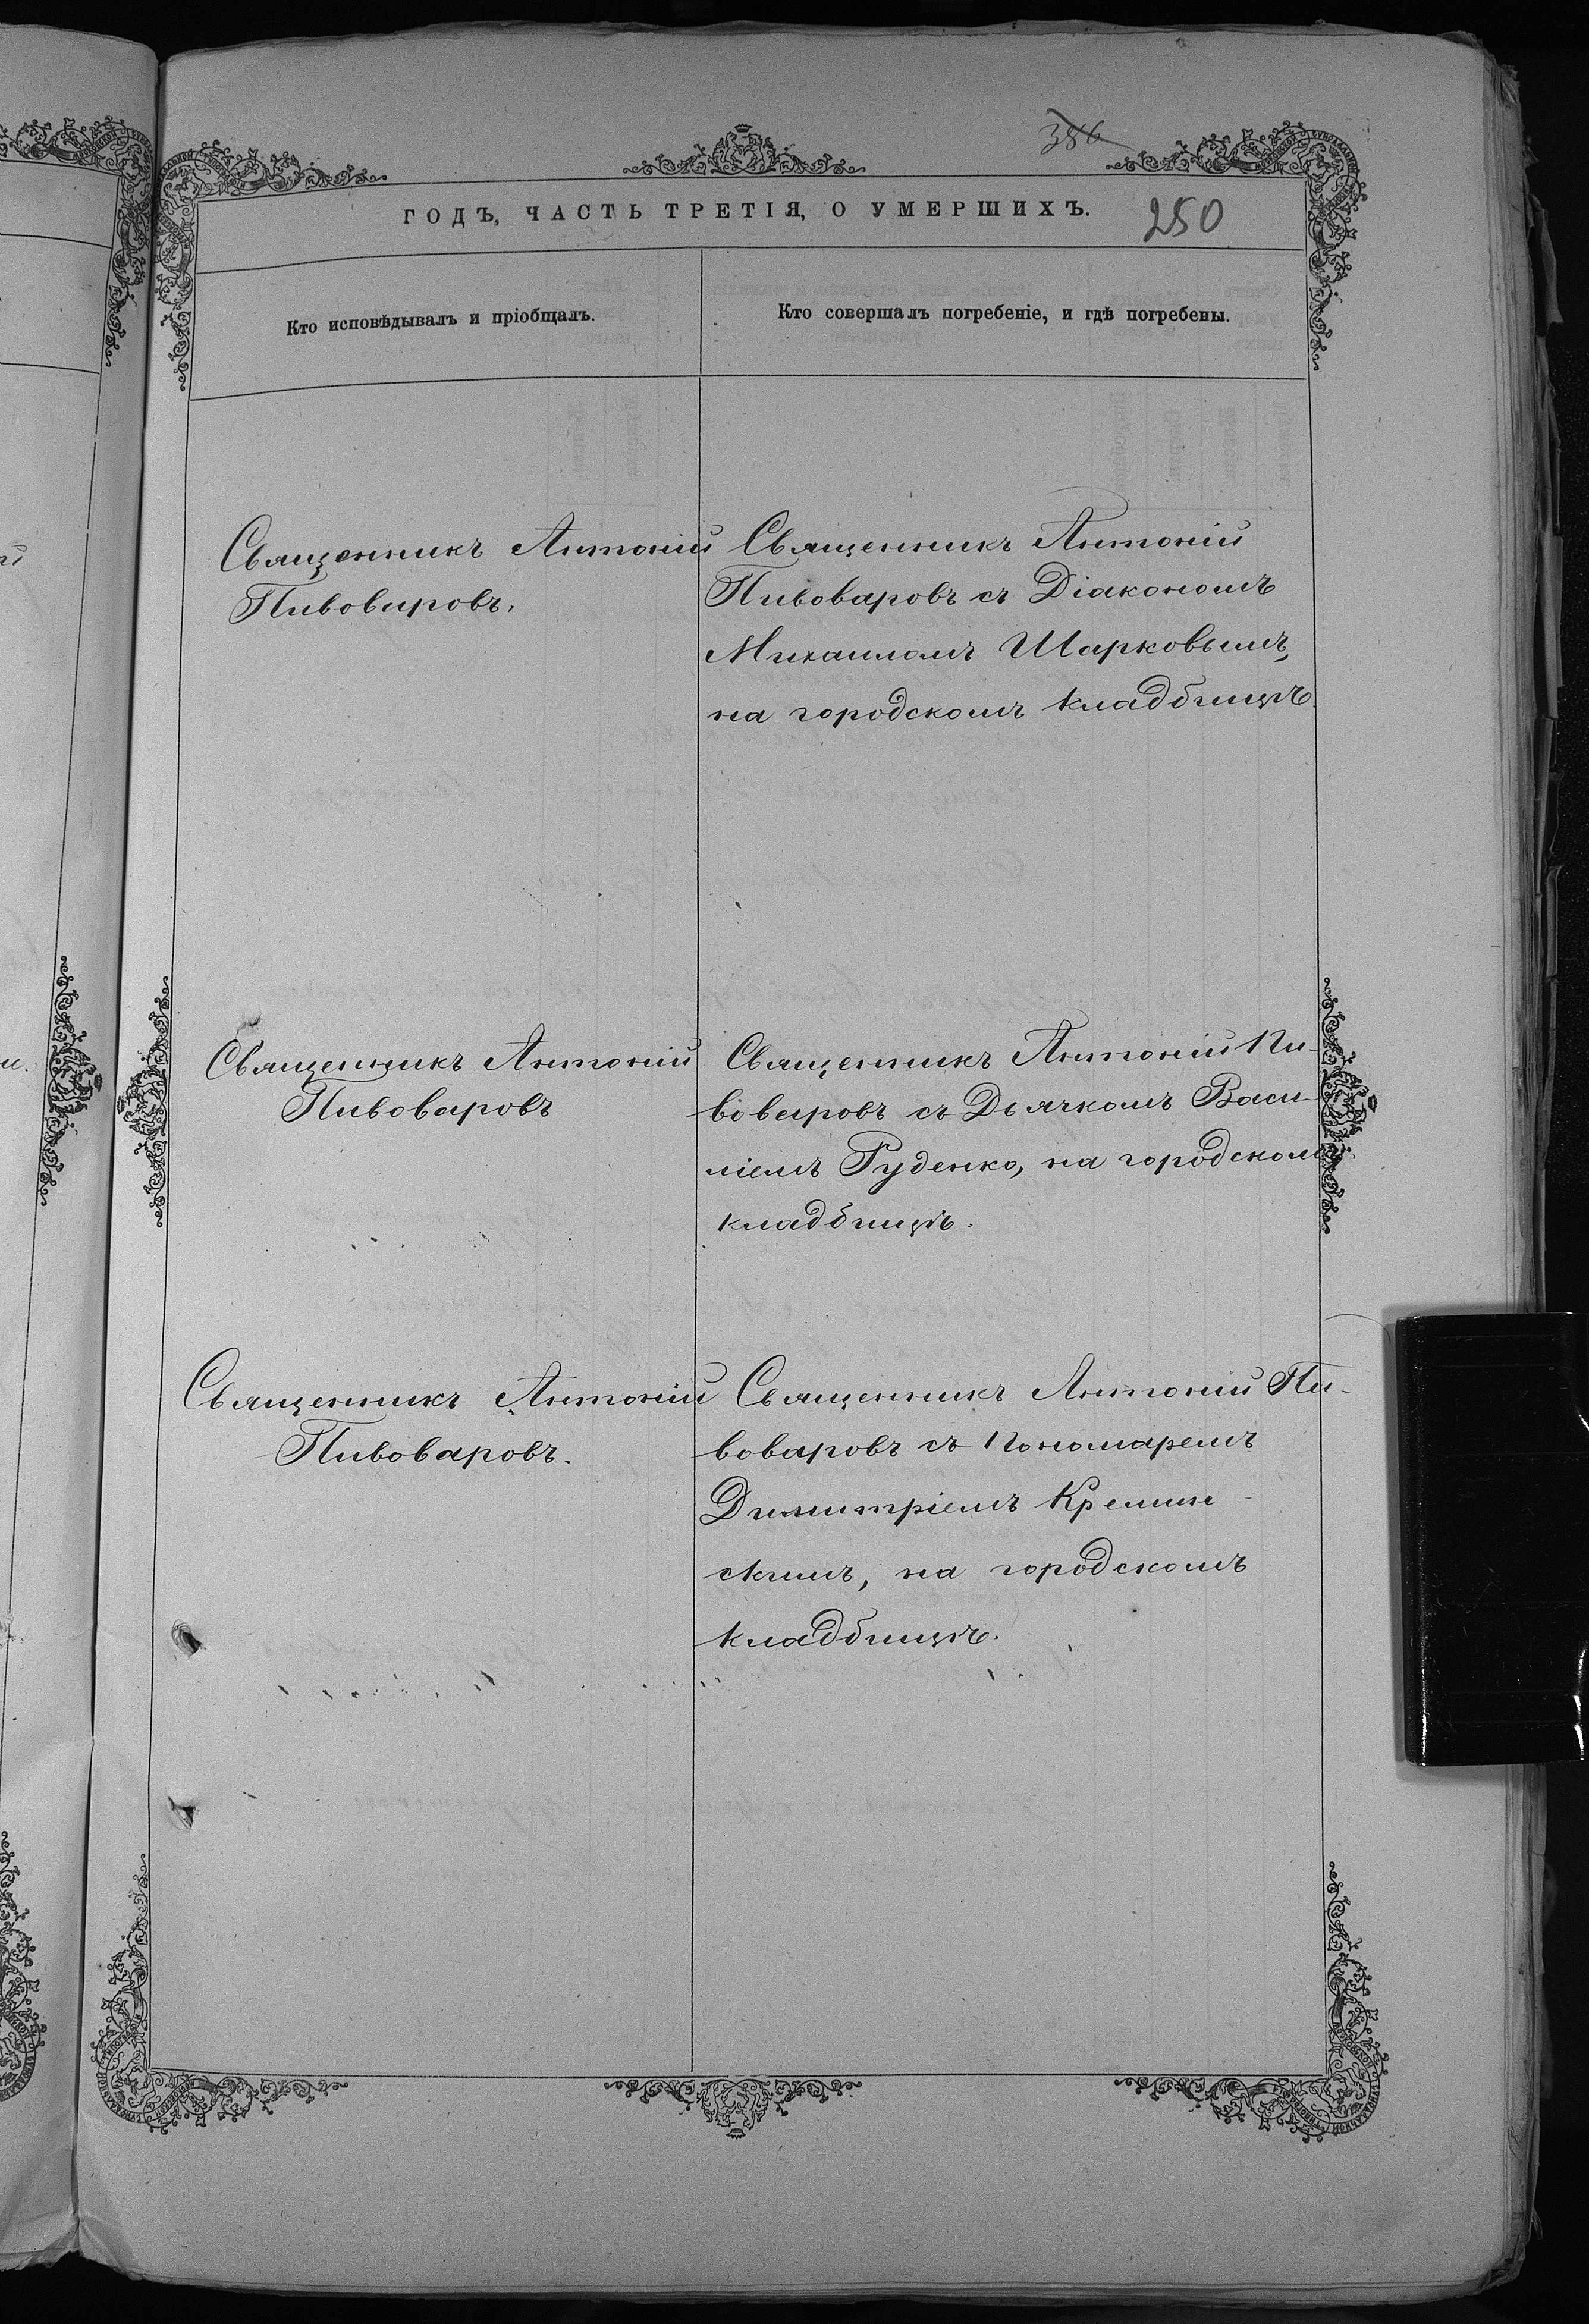 386
ГОДЪ, ЧАСТЬ ТРЕТІЯ, О УМЕРШИХЪ.
250
Кто исповѣдывалъ и пріобщалъ.
Кто совершалъ погребеніе, и гдѣ погребены.
Священникъ Антоній
Пивоваровъ.
Священникъ Антоній
Пивоваровъ съ Діакономъ
Михаиломъ Шарковымъ,
на городскомъ кладбищѣ.
Священникъ Антоній
Пивоваровъ
Священникъ Антоній Пи-
воваровъ съ Дьячкомъ Васи-
ліемъ Руденко, на городскомъ
кладбищѣ.
Священникъ Антоній
Пивоваровъ.
Священникъ Антоній Пи-
воваровъ съ Пономаремъ
Димитріемъ Кремин-
скимъ, на городскомъ
кладбищѣ.